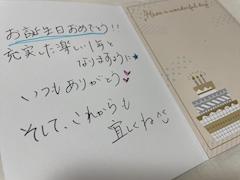 お誕生日おめでとう!!
充実した楽しい1年と
なりますように★
いつもありがとう♥
そして、これからも
宜しくね
Have a wonderful day!